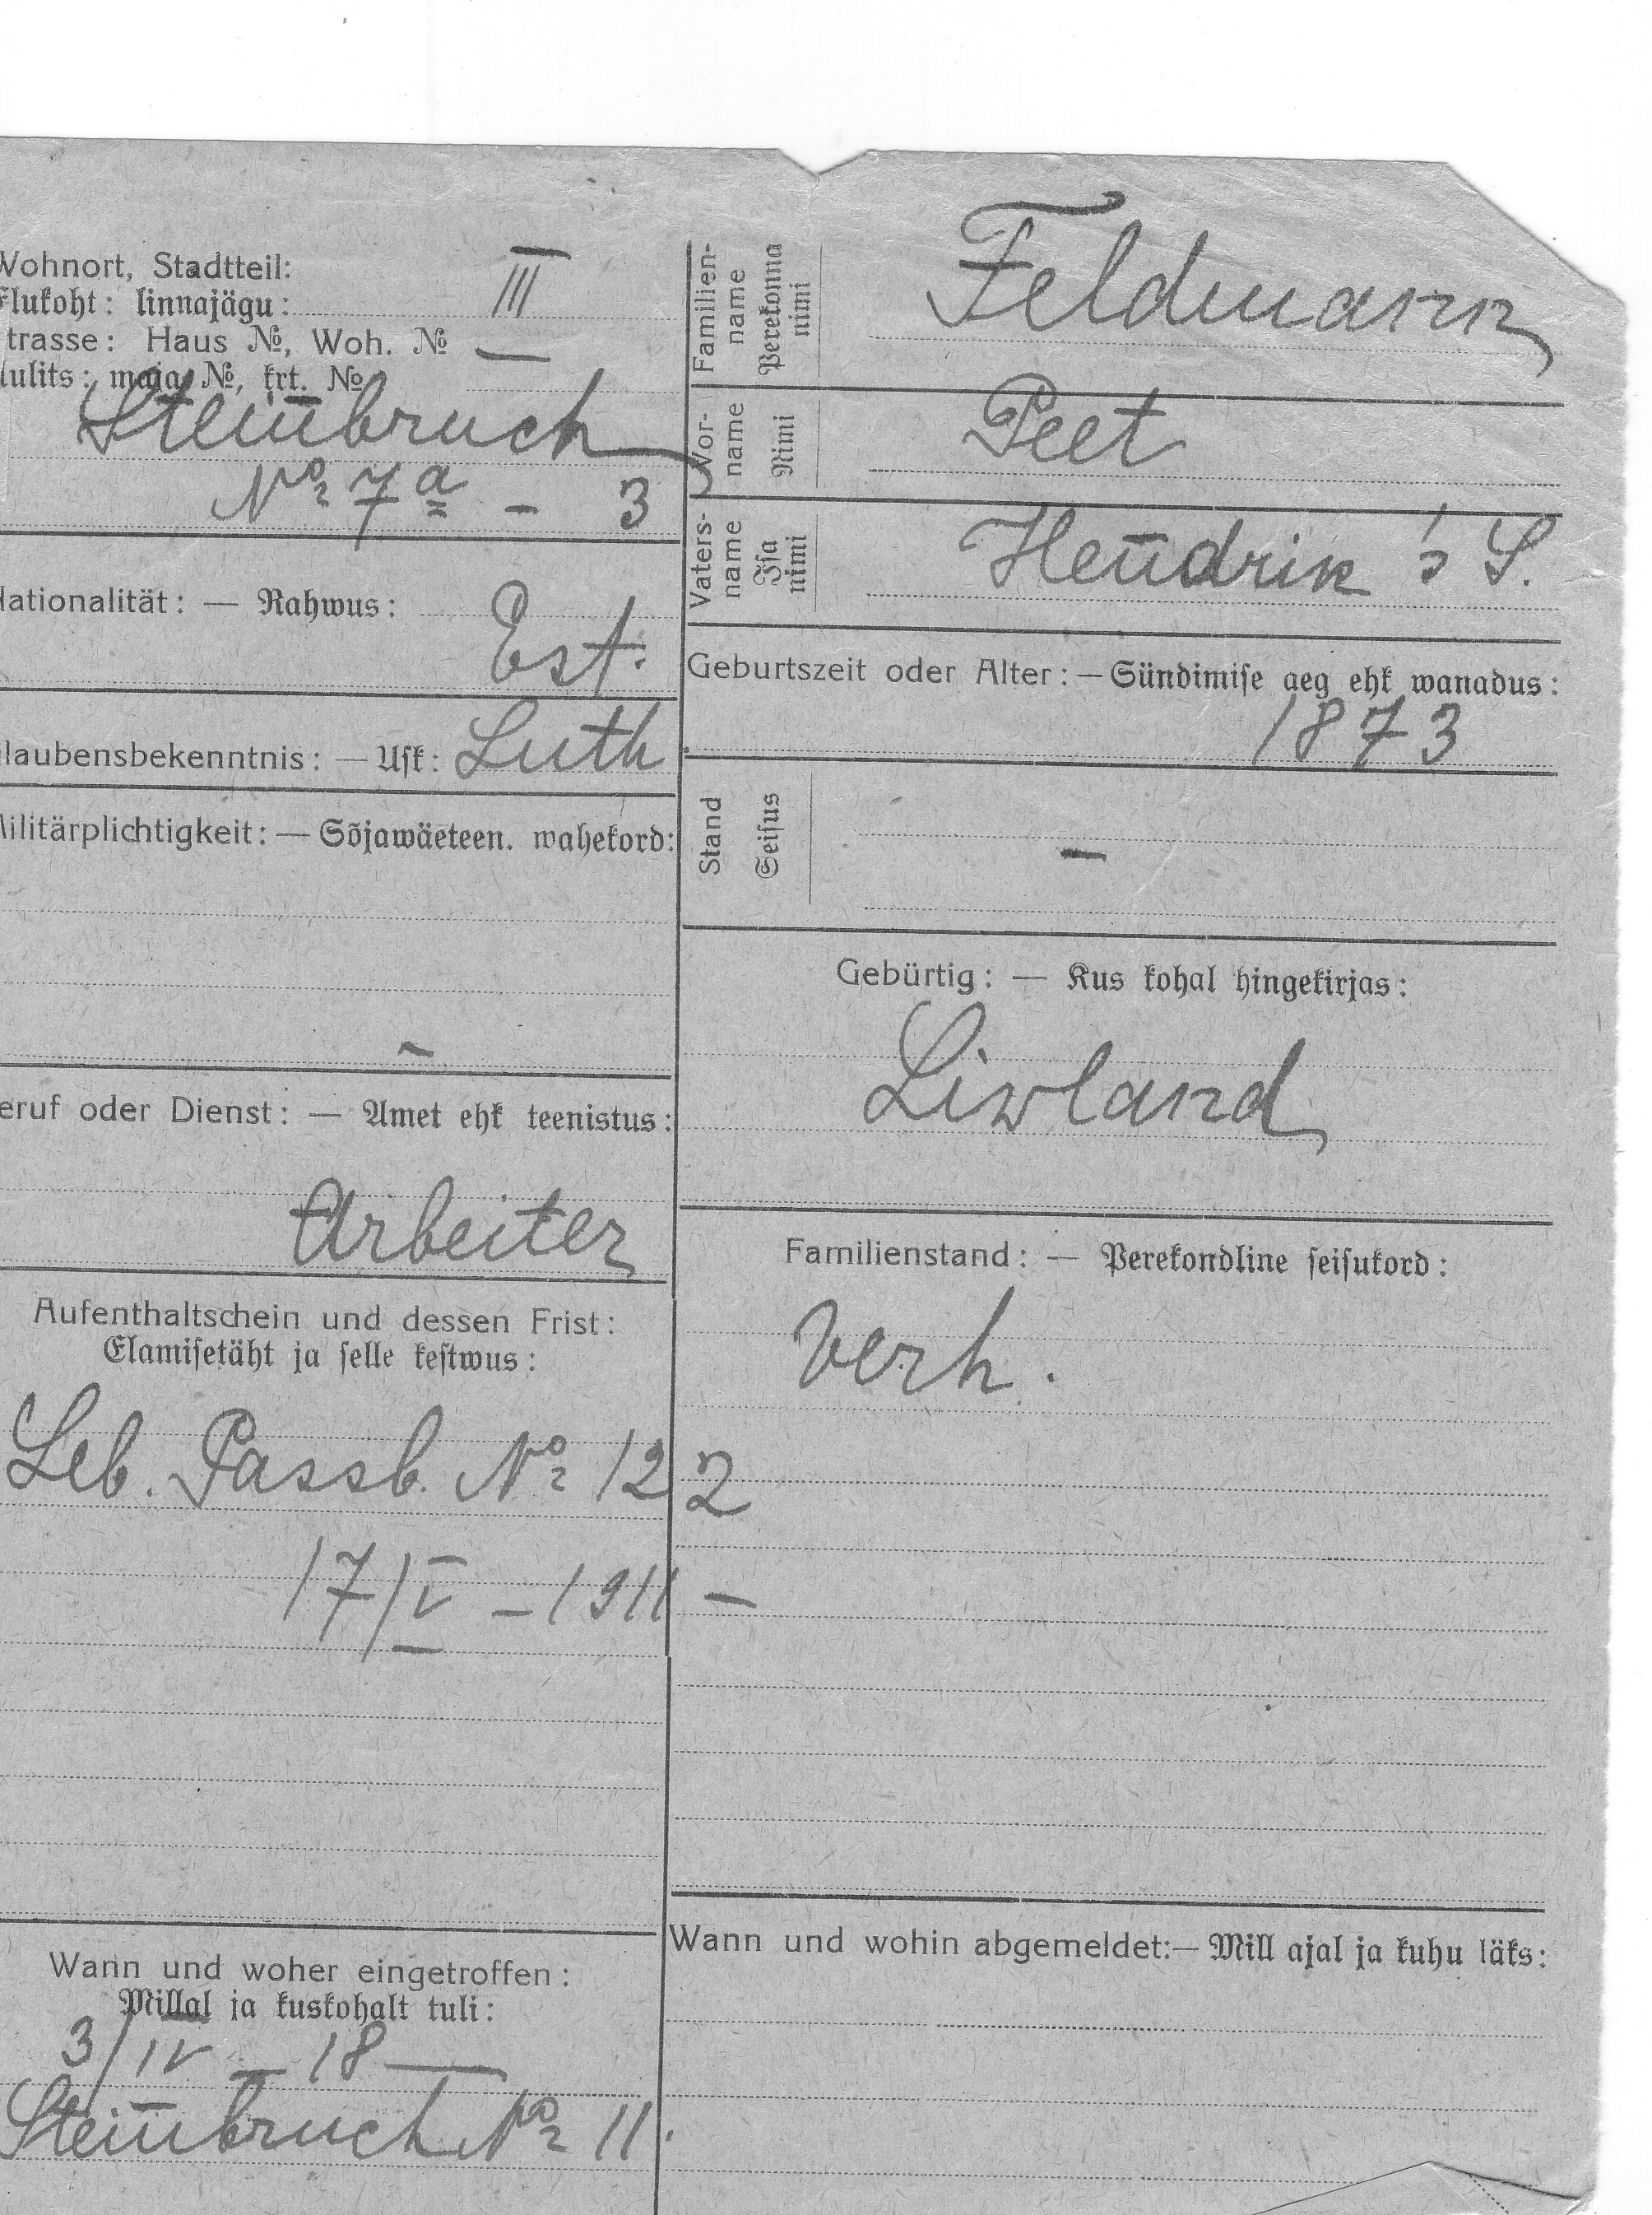 Wohnort, Stadtteil:
Elukoht: linnajägu: III
trasse: Haus №, Woh. №
Uulits: maja №, krt. №
Steinbruch
№ 7a - 3
Familien-
name
Perekonna
nimi
Feldmann
Vor-
name
Nimi
Peet
Vaters-
name
Isa
nimi
Hendrik's S.
Nationalität: — Rahwus: Est.
Geburtszeit oder Alter: — Sündimise aeg ehk wanadus:
1873
laubensbekenntnis: — Usk: Luth.
Militärplichtigkeit: — Sõjawäeteen. wahekord:
—
Stand
Seisus
—
Gebürtig: — Kus kohal hingekirjas:
Liwland
eruf oder Dienst: — Amet ehk teenistus:
Arbeiter
Familienstand: — Perekondline seisukord:
Verh.
Aufenthaltschein und dessen Frist:
Elamisetäht ja selle kestwus:
Leb. Passb. № 122
17/V – 1911 –
Wann und woher eingetroffen:
Millal ja kuskohalt tuli:
3/IV – 18 —
Steinbruch № 11.
Wann und wohin abgemeldet:— Mill ajal ja kuhu läks: